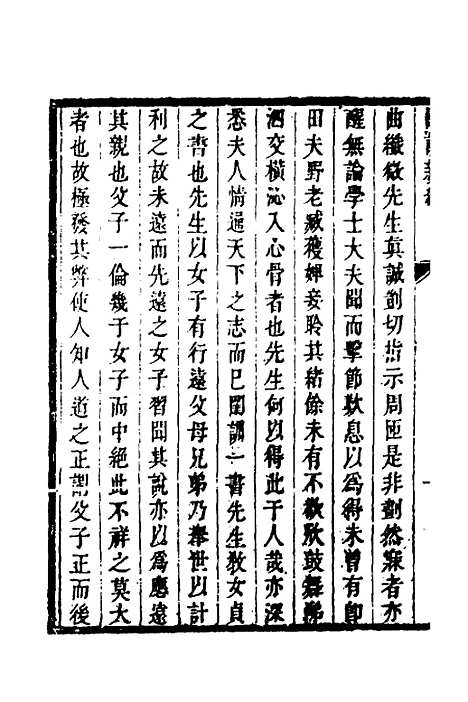 曲纖微先生真誠剴切指示周匝是非劃然寐者亦
醒無論學士大夫聞而擊節歎息以為得未曾有卽
田夫野老臧穫婢妾聆其緒餘未有不歡欣鼓舞涕
泗交橫沁入心骨者也先生何以得此于人哉亦深
悉夫人情通天下之志而已閨訓一書先生教女貞
之書也先生以女子有行遠父母兄弟乃舉世以計
利之故未遠而先遠之女子習聞其說亦以為應遠
其親也父子一倫幾于女子而中絕此不祥之莫大
者也故極發其弊使人知人道之正謂父子正而後